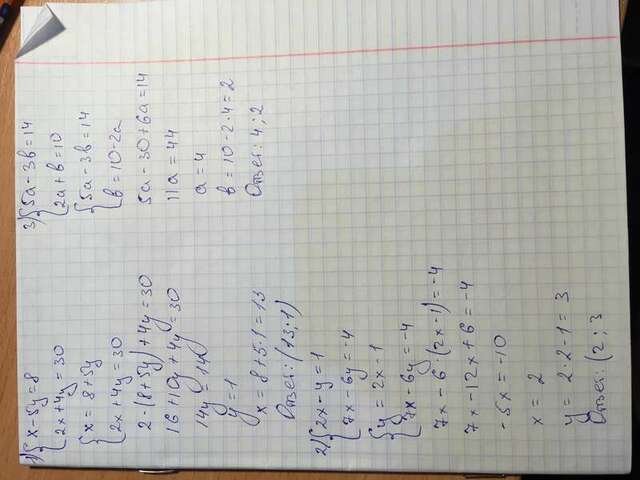 1) { x - 5y = 8
2x + 4y = 30
{ x = 8 + 5y
2x + 4y = 30
2·(8+5y) + 4y = 30
16 + 10y + 4y = 30
14y = 14
y = 1
x = 8 + 5·1 = 13
Ответ: (13; 1)
2) { 2x - y = 1
7x - 6y = -4
{ y = 2x - 1
7x - 6y = -4
7x - 6(2x - 1) = -4
7x - 12x + 6 = -4
-5x = -10
x = 2
y = 2·2 - 1 = 3
Ответ: (2; 3
3) { 5a - 3в = 14
2a + в = 10
{ 5a - 3в = 14
в = 10 - 2a
5a - 30 + 6a = 14
11a = 44
a = 4
в = 10 - 2·4 = 2
Ответ: 4; 2